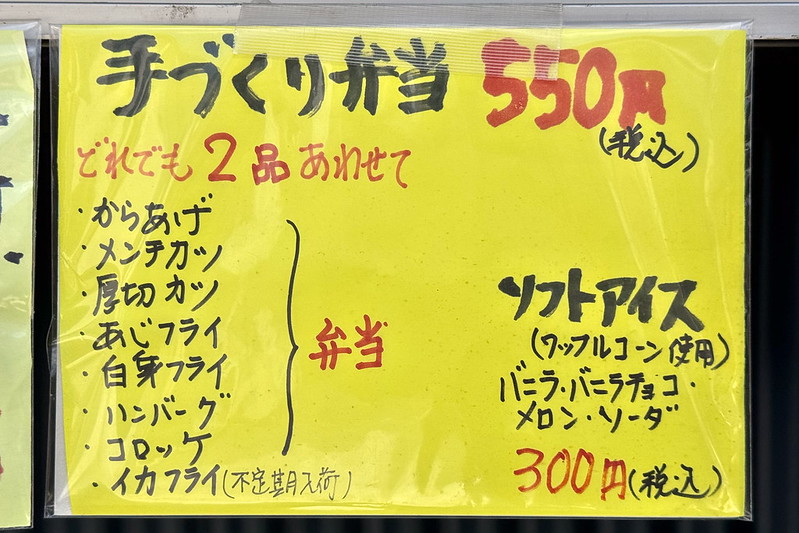 手づくり弁当 550円
(税込)
どれでも2品あわせて
・からあげ
・メンチカツ
・厚切カツ
・あじフライ
・白身フライ
・ハンバーグ
・コロッケ
・イカフライ(不定期入荷)
弁当
ソフトアイス
(ワッフルコーン使用)
バニラ・バニラチョコ・
メロン・ソーダ
300円(税込)